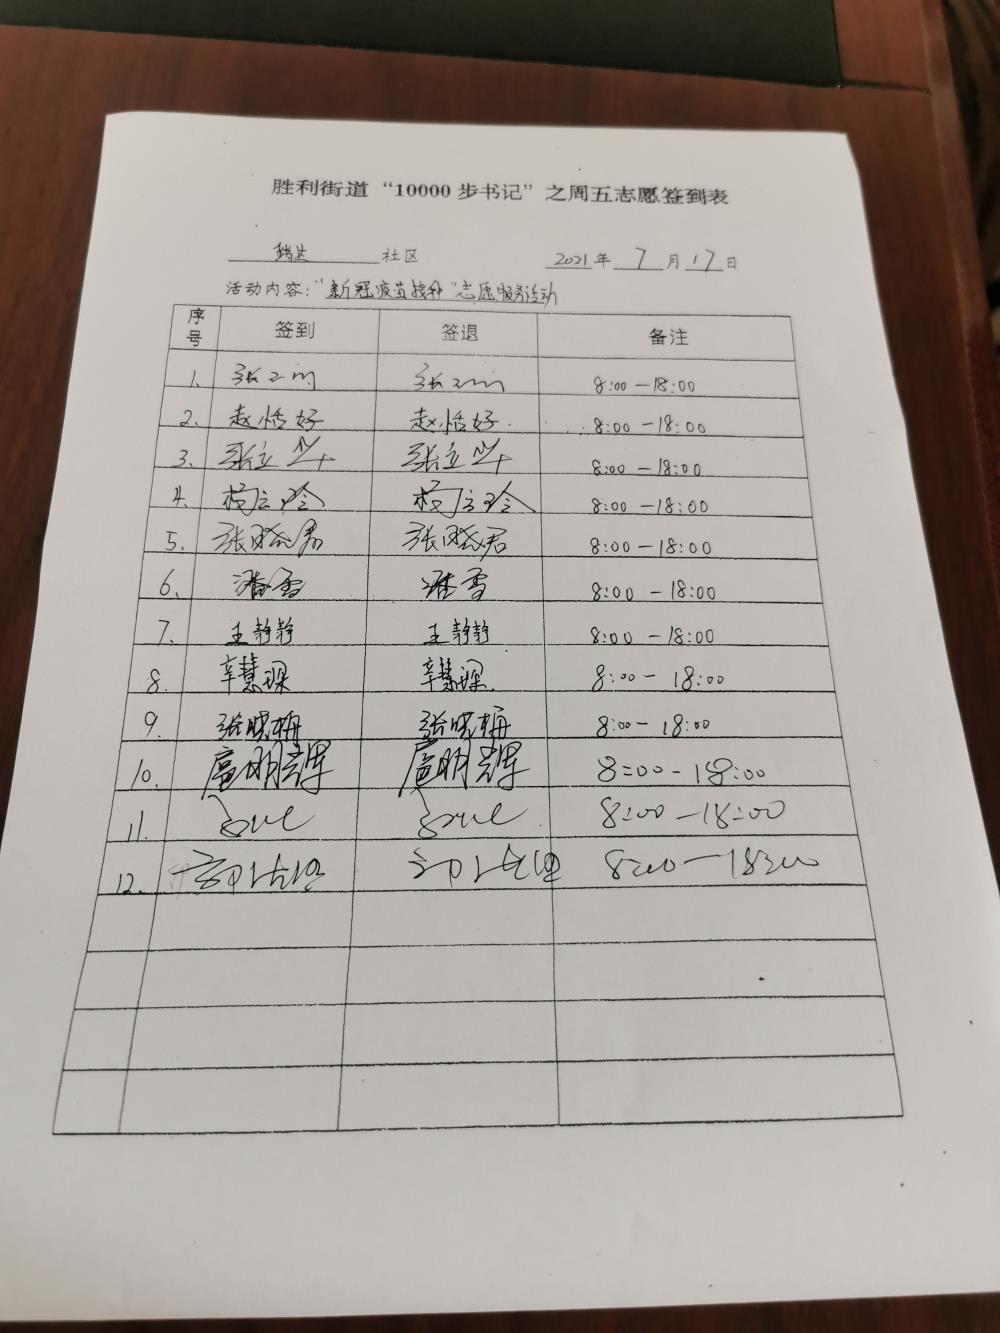 胜利街道“10000步书记”之周五志愿签到表
瑞达 社区 2021年 7 月 17 日
活动内容:“新冠疫苗接种”志愿服务活动
序号 签到 签退 备注
1. 张 张 8:00-18:00
2. 赵恬好 赵恬好 8:00-18:00
3. 张立 张立 8:00-18:00
4. 杨立玲 杨立玲 8:00-18:00
5. 张晓君 张晓君 8:00-18:00
6. 潘雪 潘雪 8:00-18:00
7. 王静静 王静静 8:00-18:00
8. 辛慧琛 辛慧琛 8:00-18:00
9. 张晓梅 张晓梅 8:00-18:00
10. 扈明辉 扈明辉 8:00-18:00
11. 8:00-18:00
12. 8:00-18:00